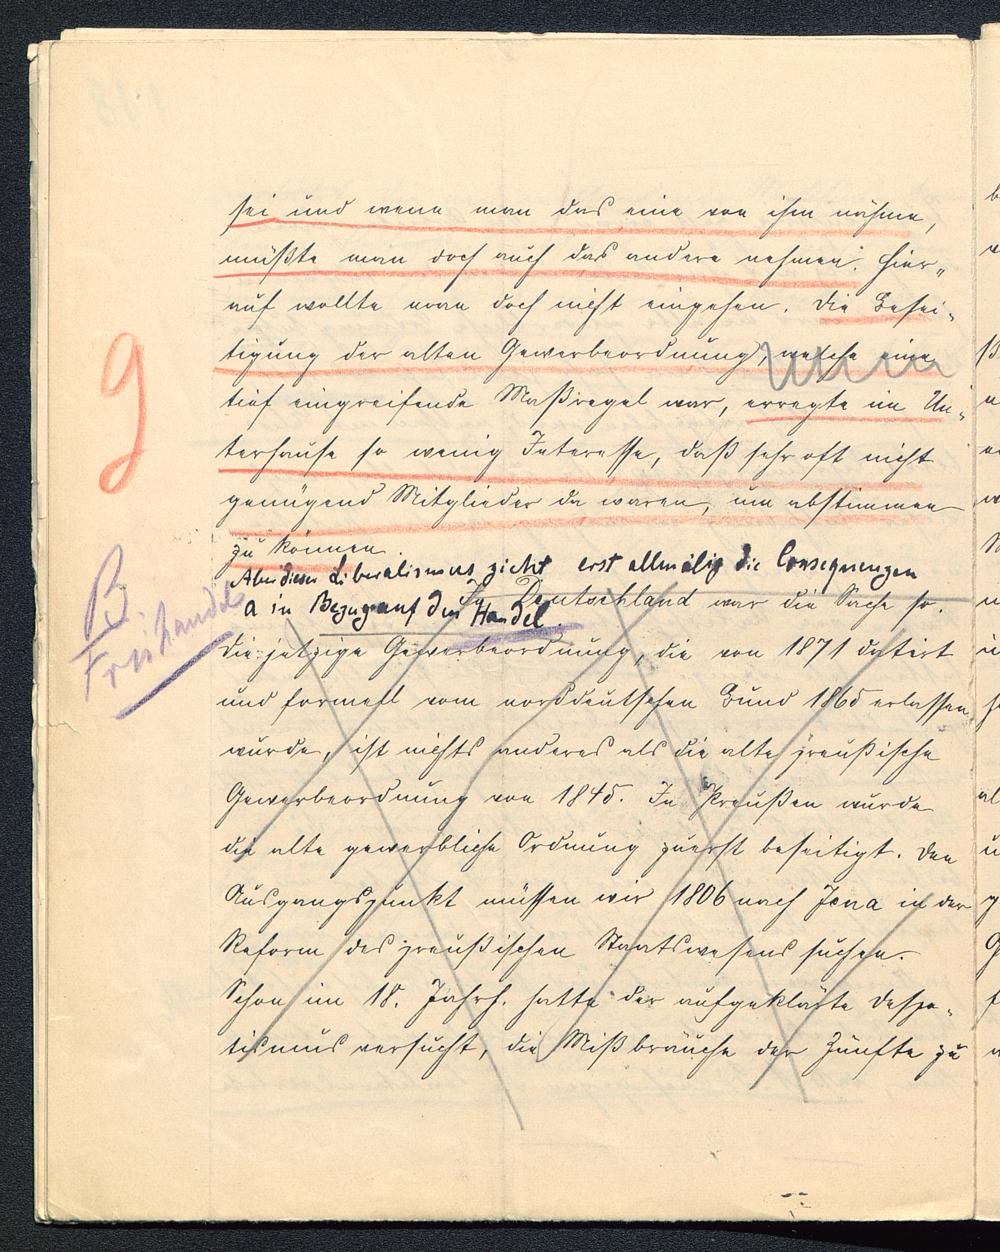 sei und wenn man das eine von ihm nähme,
müßte man doch auch das andere nehmen. Hier„
auf wollte man doch nicht eingehen. Die Besei„
tigung der alten Gewerbeordnung, welche eine
tief eingreifende Maßregel war, erregte im Un„
terhause so wenig Interesse, daß sehr oft nicht
genügend Mitglieder da waren, um abstimmen
zu können.
Aber dieser Liberalismus zieht erst allmälig die Consequenzen
a in Bezug auf den Handel.
In Deutschland war die Sache so.
g
B.
Freihandel
Die jetzige Gewerbeordnung, die von 1871 datiert
und formell vom norddeutschen Bund 1869 erlassen
wurde, ist nichts anderes als die alte preußische
Gewerbeordnung von 1845. In Preußen wurde
die alte gewerbliche Ordnung zuerst beseitigt. Den
Ausgangspunkt müssen wir 1806 nach Jena in der
Reform des preußischen Staatswesens suchen.
Schon im 18. Jahrh. hatte der aufgeklärte Despo„
tismus versucht, die Mißbräuche der Zünfte zu